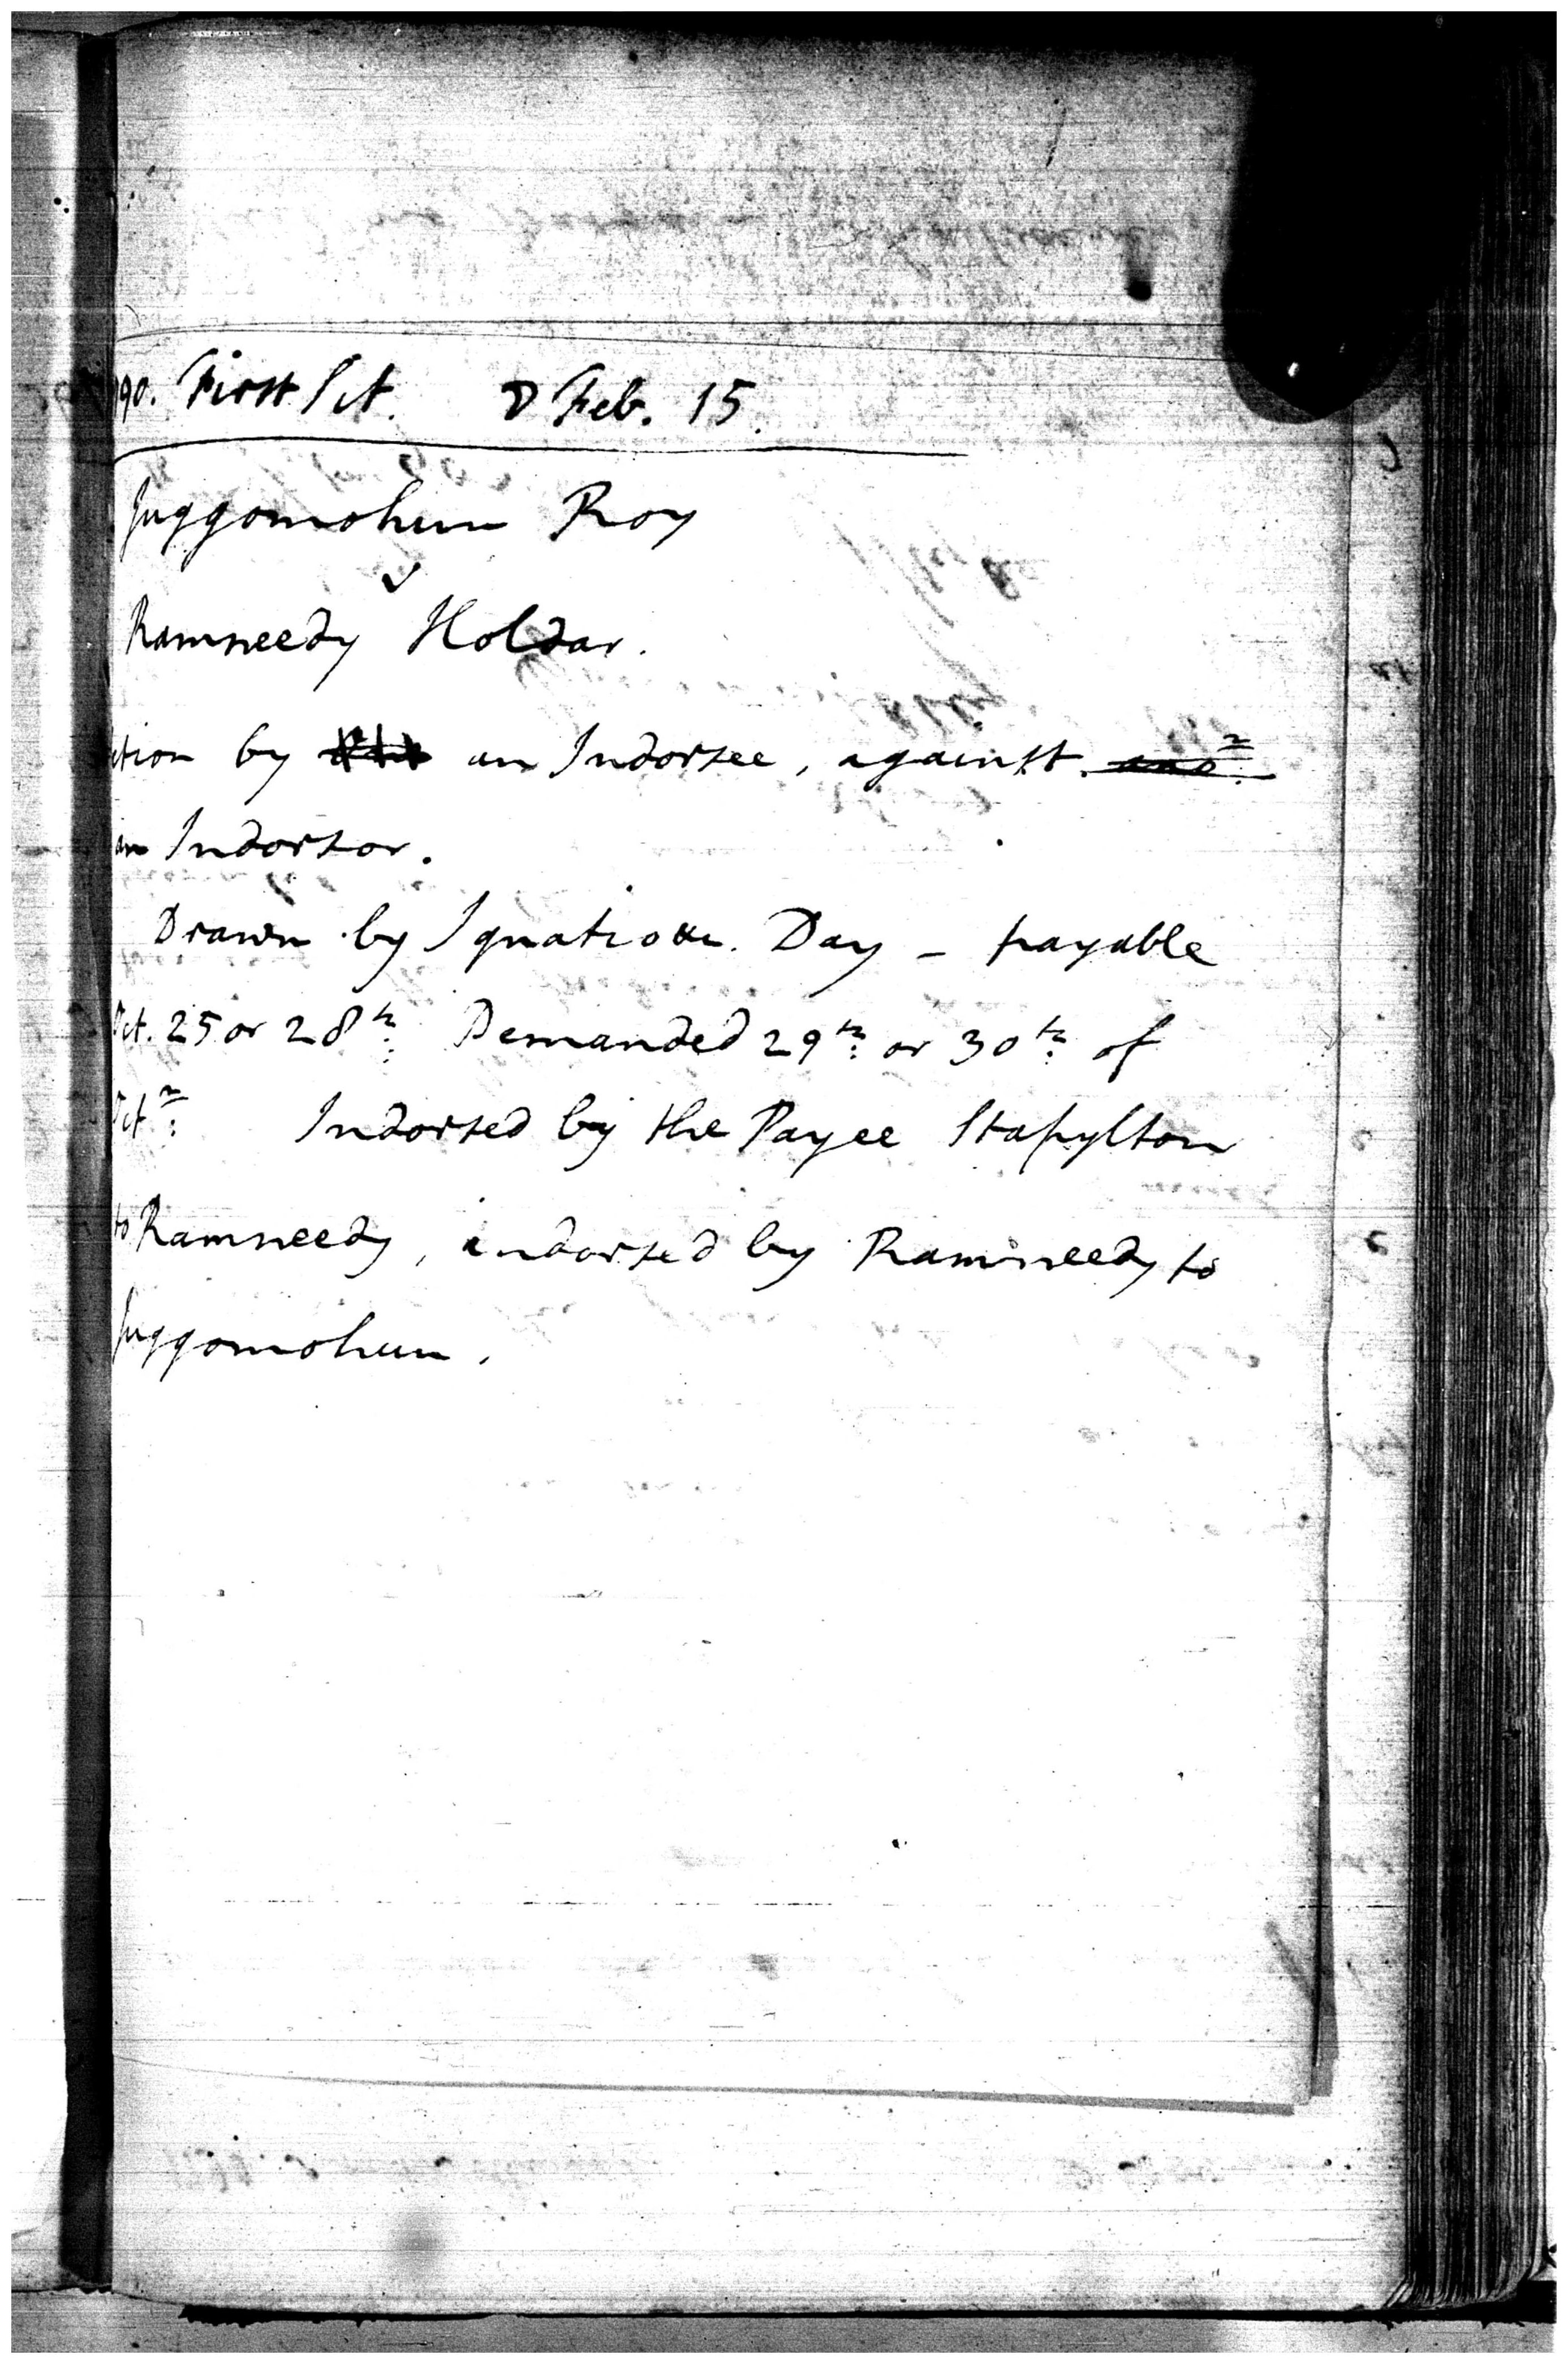 90. First Sit. ☽ Feb. 15.
Juggomohun Roy
v
Ramneedy Holdar.
ction by an Indorsee, against
an Indorsor.
Drawn by Ignatious Day – payable
Oct. 25 or 28th. Demanded 29th. or 30th. of
Octr. Indorsed by the Payee Stapylton
to Ramneedy, indorsed by Ramneedy to
Juggomohun.